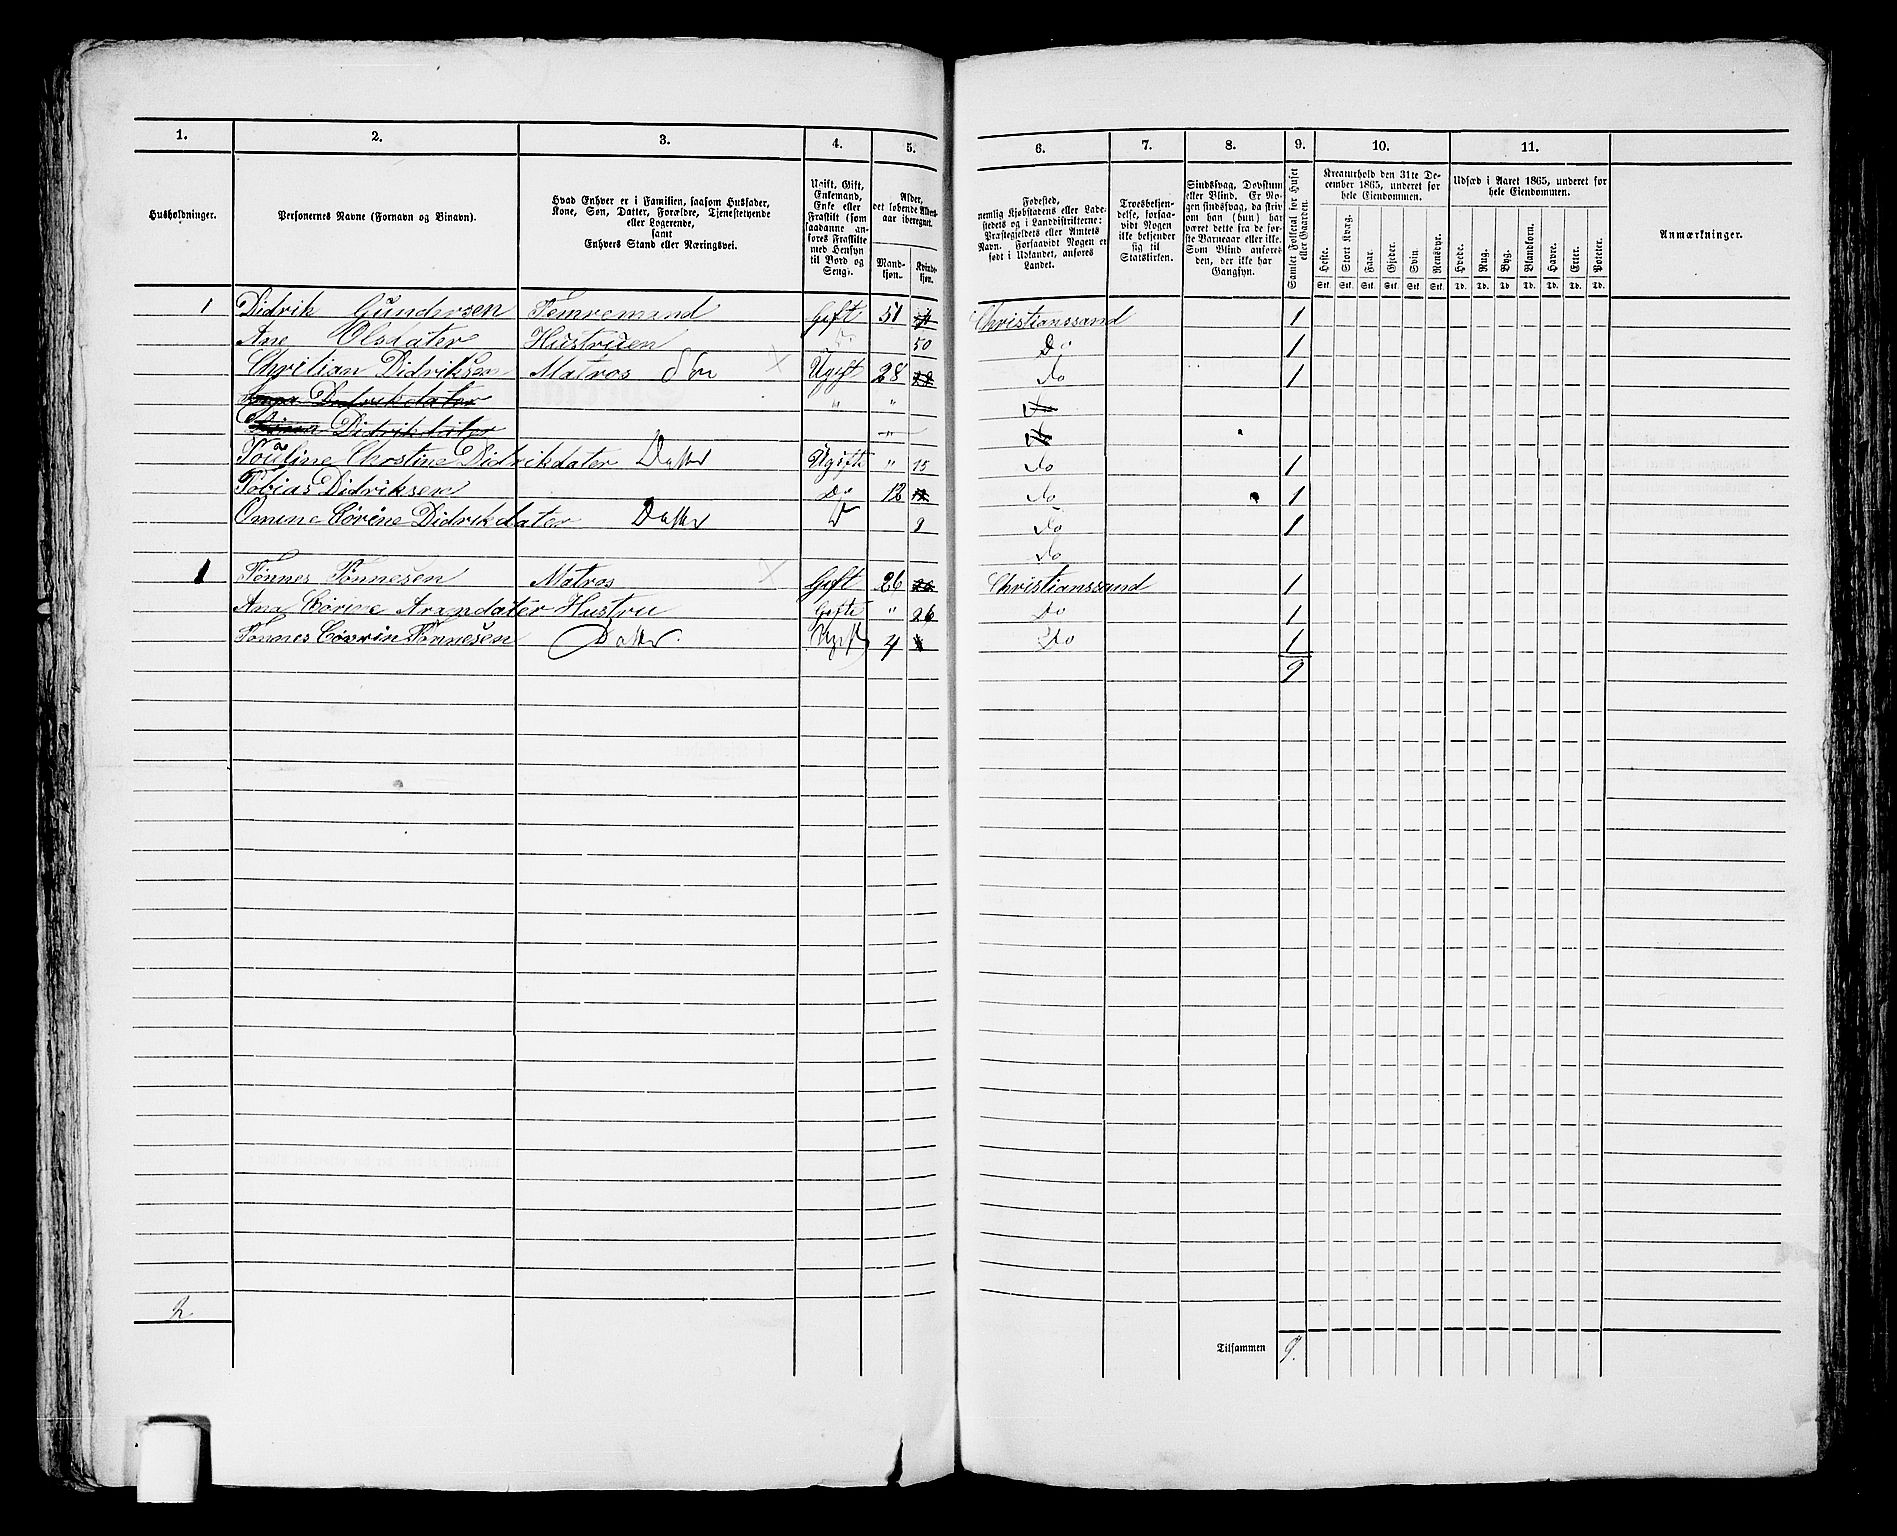 1. 2. 3. 4. 5. 6. 7. 8. 9. 10. 11.
Husholdninger.
Personernes Navne (Fornavn og Binavn).
Hvad Enhver er i Familien, saasom Husfader,
Kone, Søn, Datter, Forældre, Tjenestetyende
eller Logerende,
samt
Enhvers Stand eller Næringsvei.
Ugift, Gift,
Enkemand,
Enke eller
Fraskilt (som
saadanne an-
føres Fraskilte
med Hensyn
til Bord og
Seng).
Alder,
det løbende Alders-
aar iberegnet.
Mand-
kjøn.
Kvinde-
kjøn.
Fødested,
nemlig Kjøbstadens eller Lade-
stedets og i Landdistrikterne:
Præstegjeldets eller Amtets
Navn. Forsaavidt Nogen er
født i Udlandet, anføres
Landet.
Troesbekjen-
delse, forsaa-
vidt Nogen
ikke bekjender
sig til
Statskirken.
Sindssvag, Døvstum
eller Blind. Er No-
gen sindssvag, da skriv
om han (hun) har
været dette fra de før-
ste Barneaar eller ikke.
Som Blind anføres
den, der ikke har
Gangsyn.
Samlet Folketal for Huset
eller Gaarden.
Kreaturhold den 31te De-
cember 1865, underet for
hele Eiendommen.
Heste. Stort Kvæg. Faar Gjeder. Svin Rensdyr.
Stk. Stk. Stk. Stk. Stk. Stk.
Udsæd i Aaret 1865, underet for
hele Eiendommen.
Hvede. Rug. Byg. Blandkorn. Havre. Erter. Poteter.
Td. Td. Td. Td. Td. Td. Td.
Anmærkninger.
1 Didrik Gundersen Tømremand Gift 51 Christianssand 1
Ane Olsdater Hustruen do 50 Do 1
Chritian Didriksen Matros Søn Ugift 28 do 1
Didrikdater " "
Didrikdater "
Touline Chrstine Didrikdater Datter Ugifte " 15 do 1
Tobias Didriksen Do 12 do 1
Omine Sørine Didrikdater Datter D 9 do 1
do
1 Tønnes Tønnesen Matros Gift 26 Christianssand 1
Ana Sørine Arendater Hustru Gifte " 26 Do 1
Tønnes Tønnesen Datter Ugift 4 Do 1
9
2
Tilsammen 9.